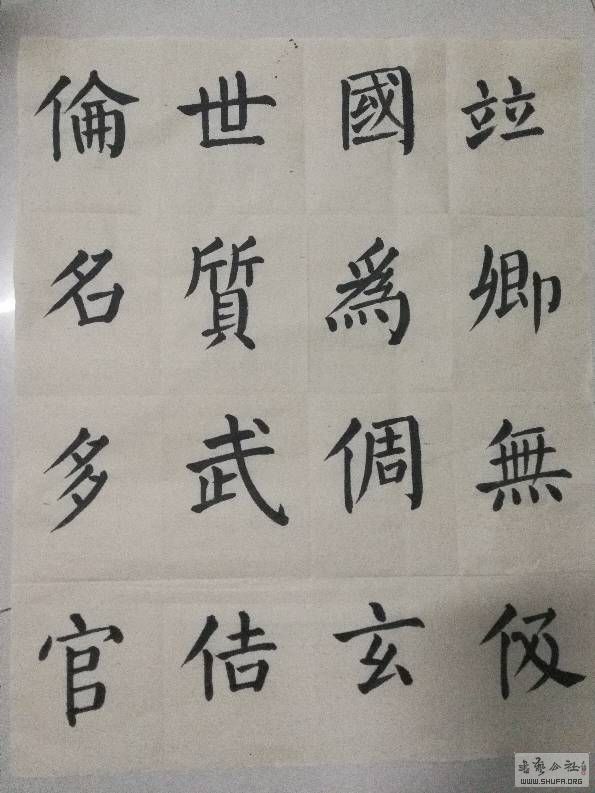 竝卿無伋
國爲倜玄
世質武佶
倫名多官
书艺公社
WWW.SHUFA.ORG